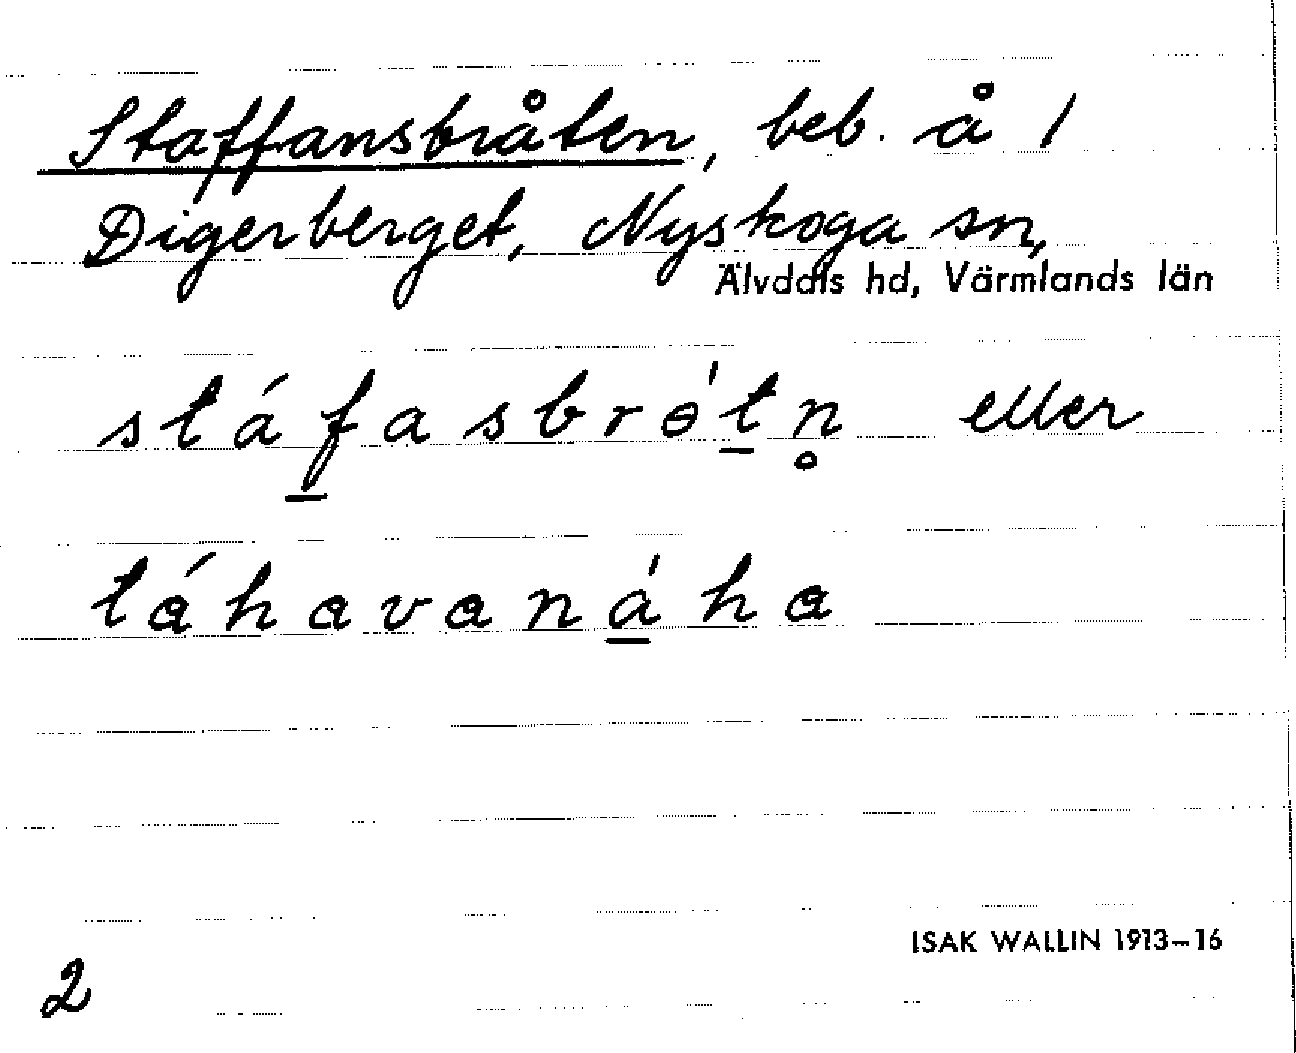 Staffansbråten, beb. å 1
Digerberget, Nyskoga sn,
Älvdals hd, Värmlands län
stáf̲asbrɵ́t̲n̥ eller
táhavaná̲ha
ISAK WALLIN 1913–16
2